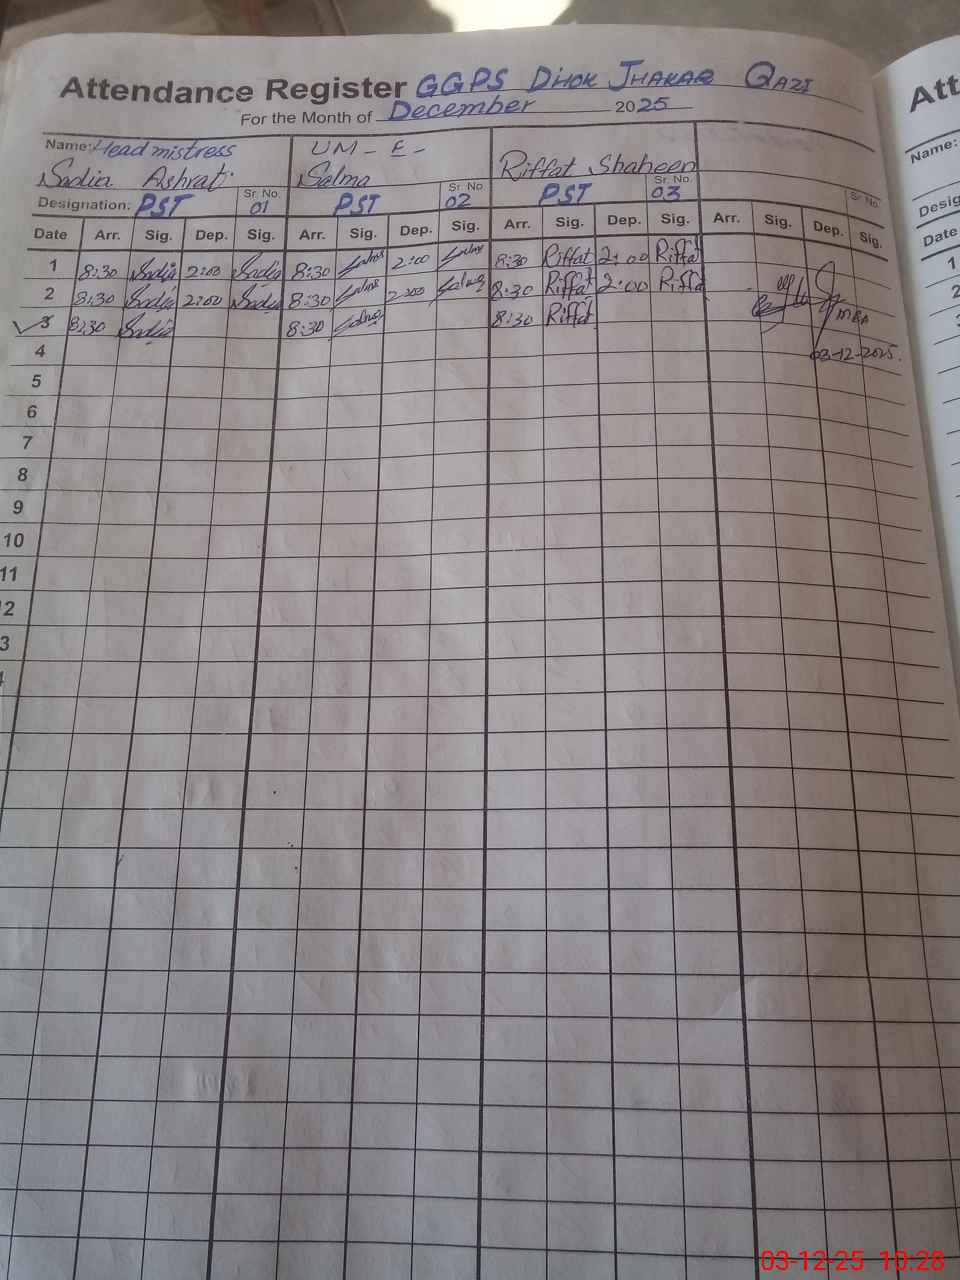 Attendance Register GGPS DHOK JHAKAR QAZI
For the Month of December 2025
Name: Head mistress UM-E-
Sadia Ashraf. Salma Riffat Shaheen
Designation: PST Sr. No. 01 PST Sr. No. 02 PST Sr. No. 03 Sr. No.
Date Arr. Sig. Dep. Sig. Arr. Sig. Dep. Sig. Arr. Sig. Dep. Sig. Arr. Sig. Dep. Sig.
1 8:30 Sadia 2:00 Sadia 8:30 Salma 2:00 Salma 8:30 Riffat 2:00 Riffat
2 8:30 Sadia 2:00 Sadia 8:30 Salma 2:00 Salma 8:30 Riffat 2:00 Riffat
3 8:30 Sadia 8:30 Salma 8:30 Riffat MEA
4 03-12-2025.
5
6
7
8
9
10
11
2
3
Att
Name:
Desig
Date
1
2
3
03-12-25 10:28